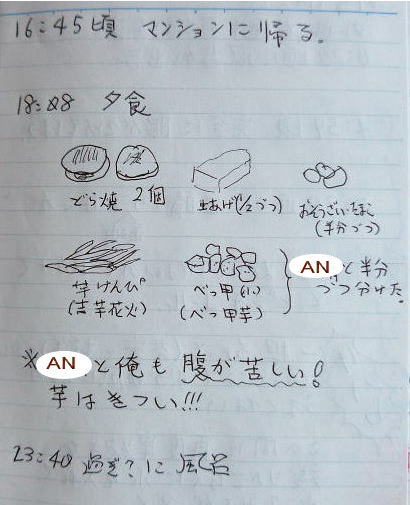 16:45頃 マンションに帰る。
18:08 夕食
どら焼 2個
(1/2づつ)
おそうざいたまご
(半分づつ)
芋けんぴ
(吉芋花火)
べっ甲(小)
(べっ甲芋)
ANと半分
づつ分けた。
※ANと俺も腹が苦しい!
芋はきつい!!!
23:40 過ぎ?に風呂